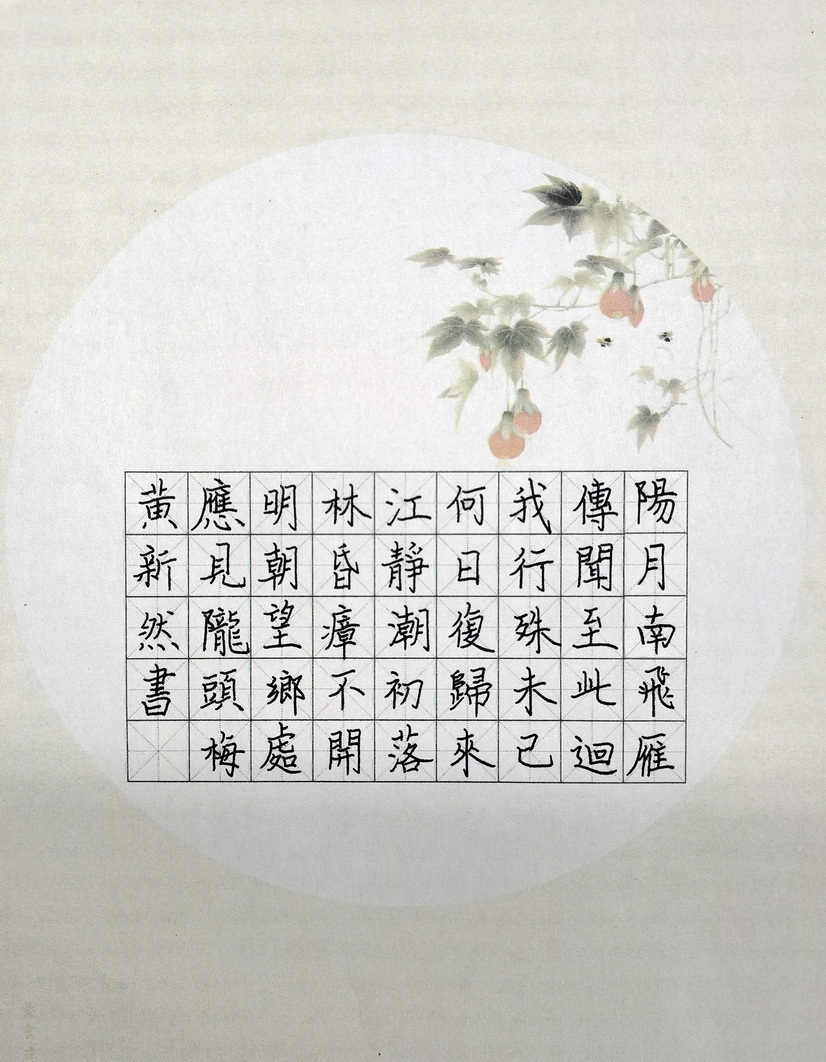 陽月南飛雁
傳聞至此迴
我行殊未已
何日復歸來
江靜潮初落
林昏瘴不開
明朝望鄉處
應見隴頭梅
黃新然書